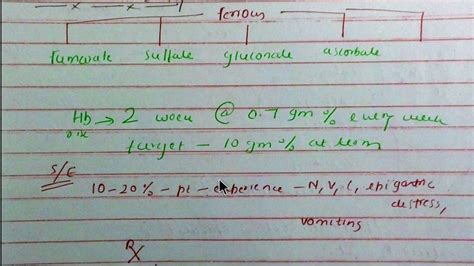 ferrous
fumarate sulfate gluconate ascorbate
Hb → 2 week @ 0.7 gm% every week
target - 10 gm% at term
S/E
10-20% - pt - experience - N, V, C, epigastric
distress,
vomiting
Rx